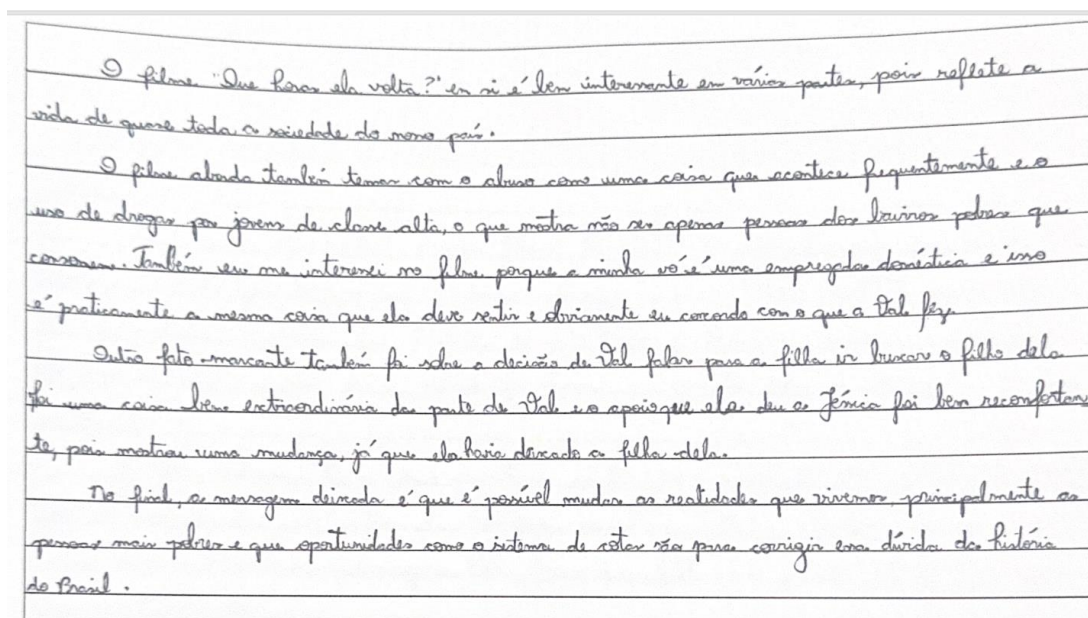 O filme "Que horas ela volta?" en si é bem interessante em várias partes, pois reflete a
vida de quase toda a sociedade do nosso país.
O filme aborda também temas com o abuso como uma coisa que acontece frequentemente e o
uso de drogas por jovens de classe alta, o que mostra não ser apenas pessoas dos bairros pobres que
consomem. Também eu me interessei no filme porque a minha vó é uma empregada doméstica e isso
é praticamente a mesma coisa que ela deve sentir e obviamente eu concordo com o que a Val fez.
Outro fato marcante também foi sobre a decisão de Val falar para a filha ir buscar o filho dela
foi uma coisa bem extraordinária da parte de Val e o apoio que ela deu a Jéssica foi bem reconfortan
te, pois mostrou uma mudança, já que ela havia deixado a filha dela.
No final, a mensagem deixada é que é possível mudar as realidades que vivemos, principalmente as
pessoas mais pobres e que oportunidades como o sistema de cotas são para corrigir essa dívida da história
do Brasil.